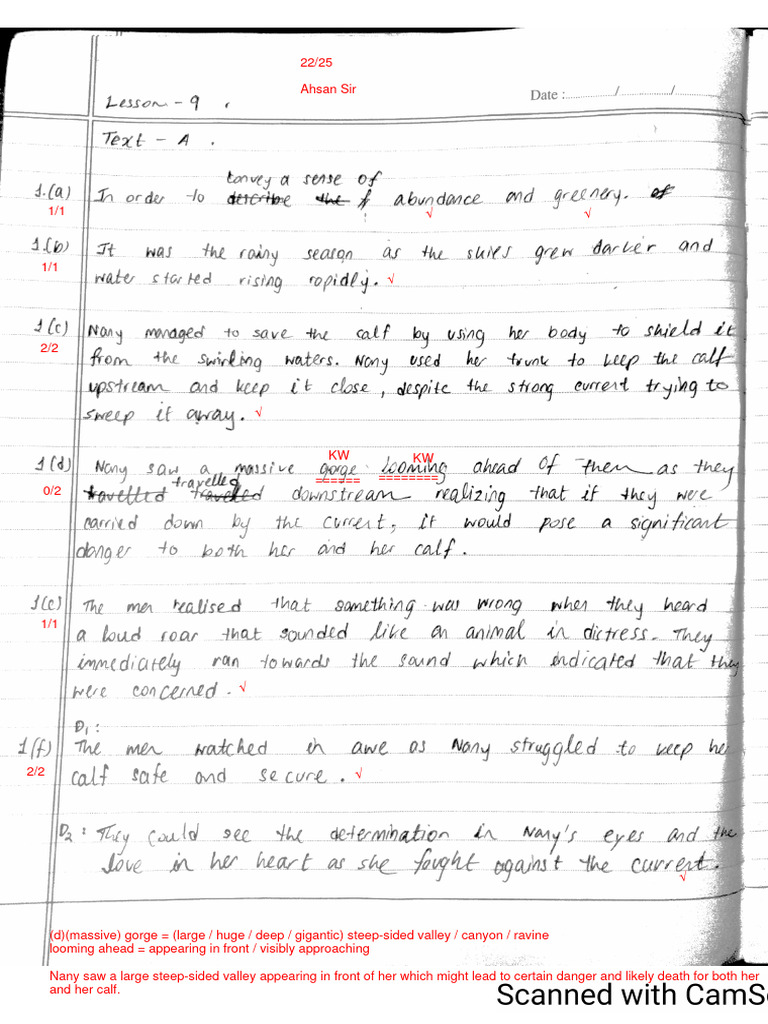 22/25
Ahsan Sir
Date :............/............/............
Lesson - 9 .
Text - A .
convey a sense of
1.(a) In order to describe the of abundance and greenery. of
1/1 √ √
1.(b) It was the rainy season as the skies grew darker and
1/1 water started rising rapidly. √
1(c) Nany managed to save the calf by using her body to shield it
2/2 from the swirling waters. Nany used her trunk to keep the calf
upstream and keep it close, despite the strong current trying to
sweep it away. √
KW KW
1(d) Nany saw a massive gorge looming ahead of them as they
travelled
0/2 travelled travelled downstream realizing that if they were
carried down by the current, it would pose a significant
danger to both her and her calf.
1(e) The men realised that something was wrong when they heard
1/1 a loud roar that sounded like an animal in distress. They
immediately ran towards the sound which indicated that they
were concerned. √
D1 :
1(f) The men watched in awe as Nany struggled to keep her
2/2 calf safe and secure. √
D2 : They could see the determination in Nany's eyes and the
love in her heart as she fought against the current. √
(d)(massive) gorge = (large / huge / deep / gigantic) steep-sided valley / canyon / ravine
looming ahead = appearing in front / visibly approaching
Nany saw a large steep-sided valley appearing in front of her which might lead to certain danger and likely death for both her
and her calf.
Scanned with CamSc